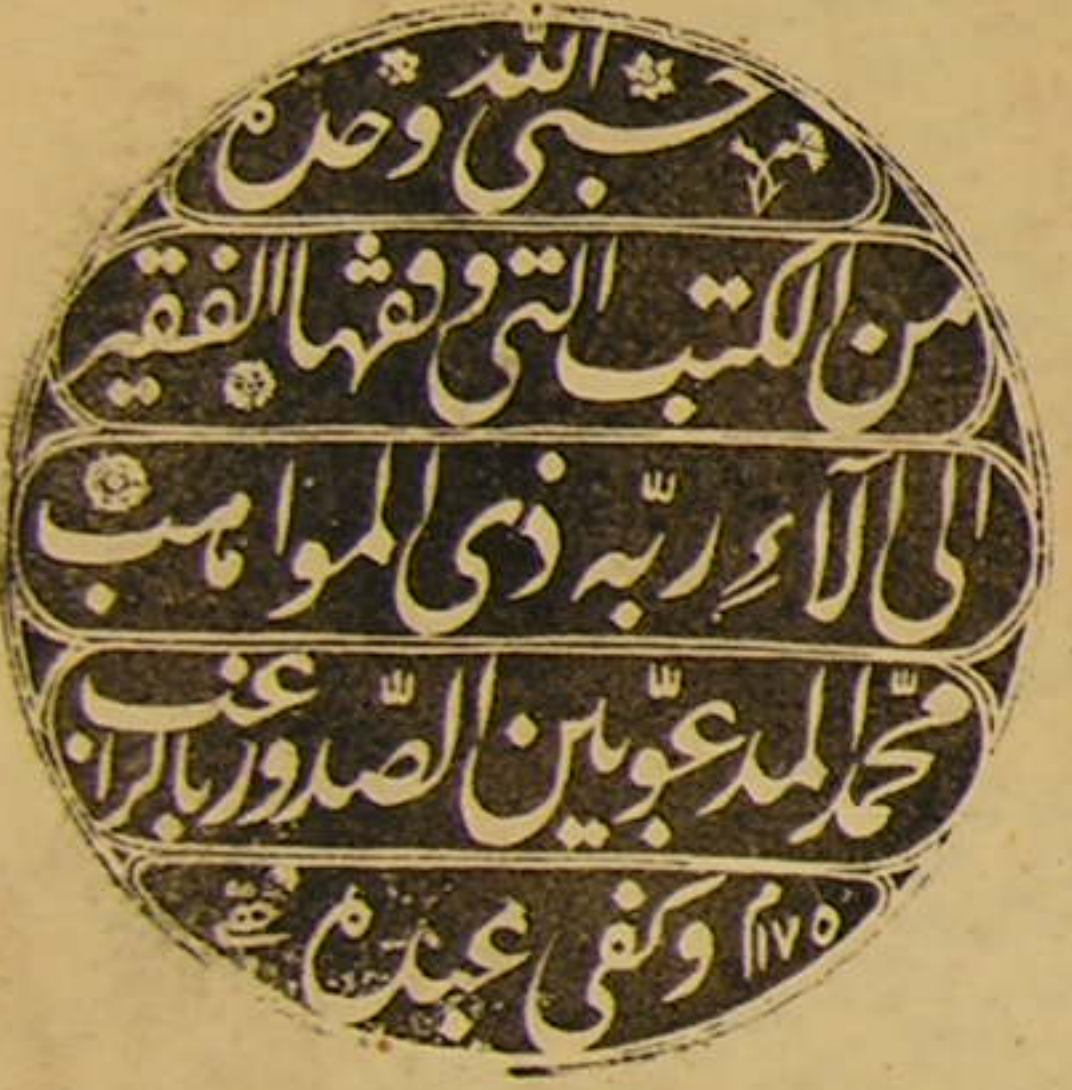 حسبي الله وحده
من الكتب التي وقفها الفقير
الى آلاء ربّه ذي المواهب
محمّد المدعوّ بين الصّدور بالراغب
م١١٧٥ وكفى عبده